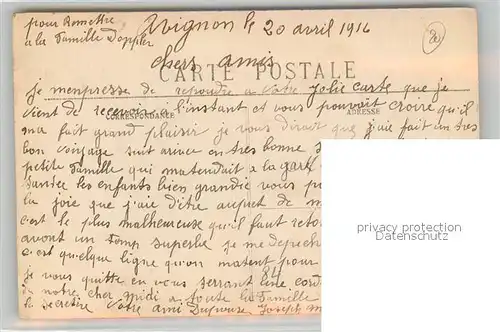 pour Remettre
a la Famille Doppler
Avignon le 20 avril 1916
chers amis
CARTE POSTALE
je menpresse de repondre a votre jolie carte que je
vient de recevoir a l'instant et vous pouvoit croire qu'il
CORRESPONDANCE
ADRESSE
ma fait grand plaisir je vous dirait que j'aie fait un tres
bon voyage suit arive en tres bonne
petite Famille qui matendait a la gare
les enfants bien grandie vous
la joie que j'aie d'être aupret de
c'est le plus malheureuse qu'il faut
avont un temp superbe je me
c'est quelque ligne qu'on matent pour
84
je vous quitte en vous serrant
de notre cher a toute la Famille
le secretere votre ami Joseph
privacy protection
Datenschutz